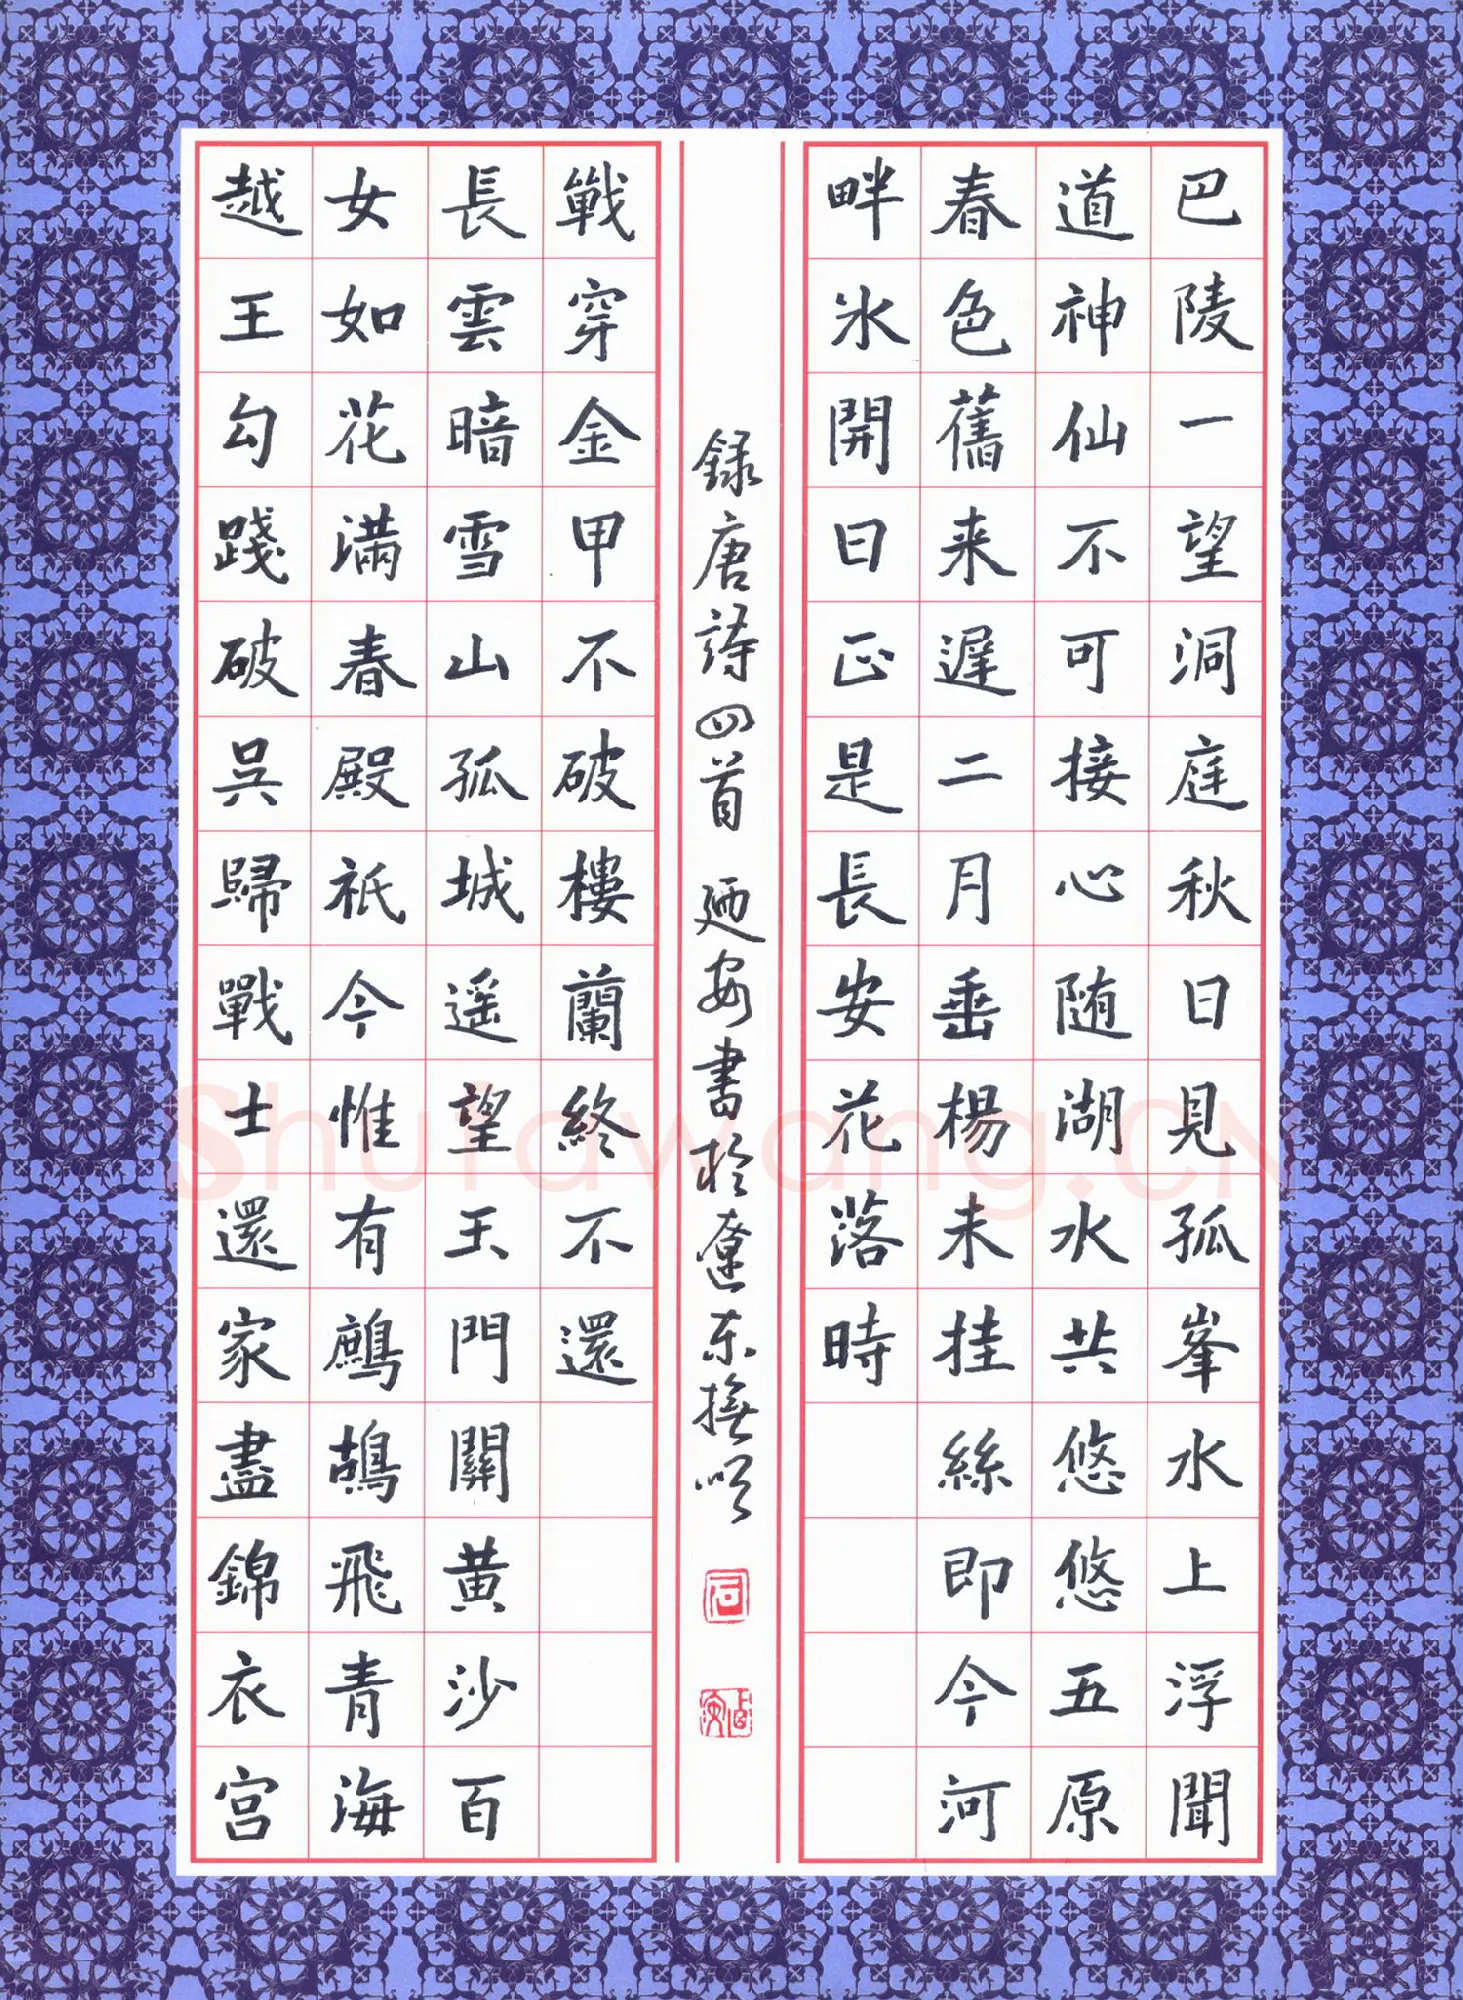 巴陵一望洞庭秋日見孤峯水上浮聞
道神仙不可接心随湖水共悠悠五原
春色舊来遲二月垂楊未挂絲即今河
畔氷開日正是長安花落時
越王勾踐破呉歸戰士還家盡錦衣宫
女如花满春殿祇今惟有鷓鴣飛青海
長雲暗雪山孤城遥望玉門關黄沙百
戰穿金甲不破樓蘭終不還
録唐詩四首 廼安書於遼東撫順
Shufawang.CN